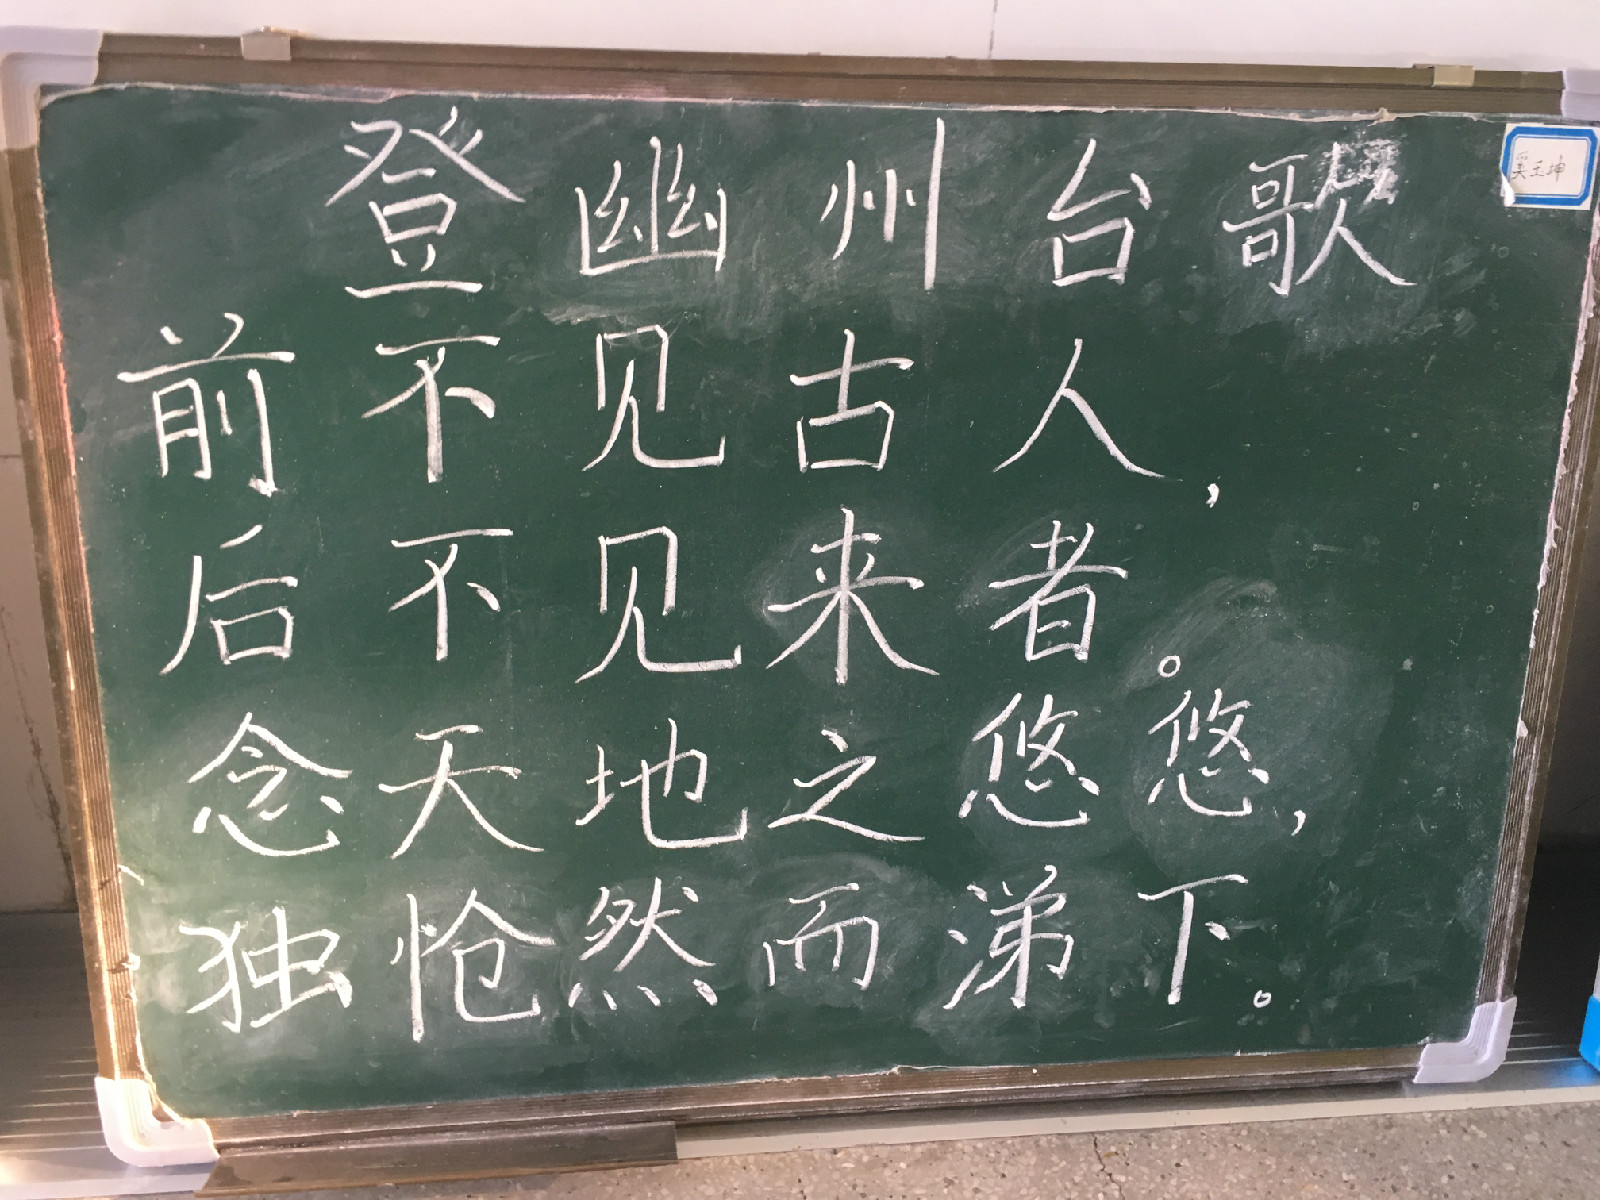 登幽州台歌
前不见古人，
后不见来者。
念天地之悠悠，
独怆然而涕下。
奚玉坤